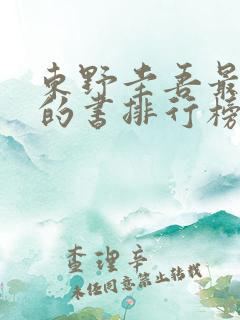 东野圭吾最
的书排行榜
查理辛
未经同意禁止转载